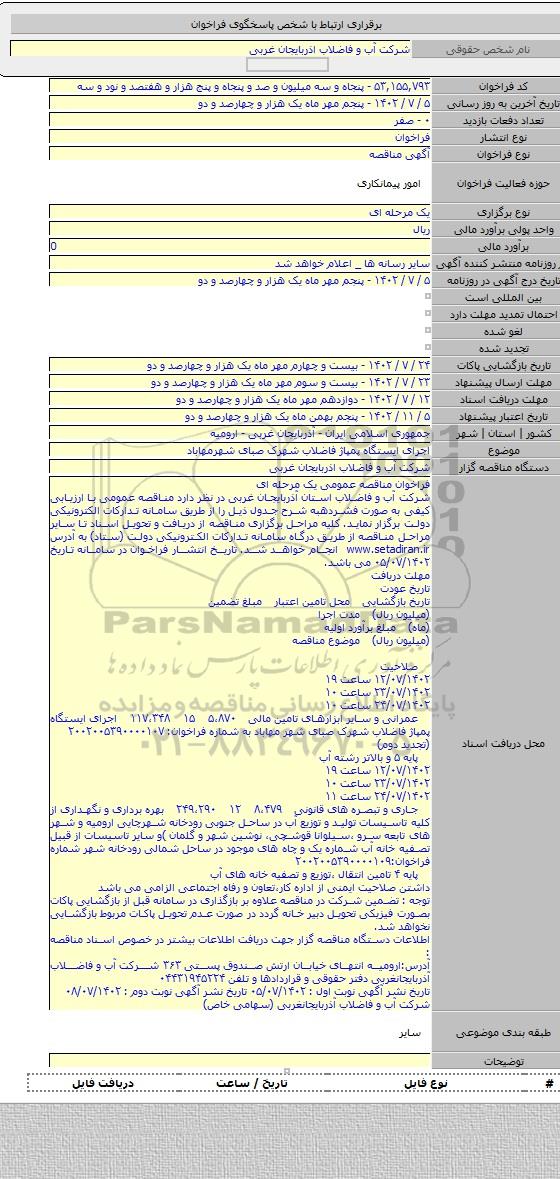 برقراری ارتباط با شخص پاسخگوی فراخوان
نام شخص حقوقی شرکت آب و فاضلاب اذربایجان غربی
کد فراخوان ۵۳,۱۵۵,۷۹۳ - پنجاه و سه میلیون و صد و پنجاه و پنج هزار و هفتصد و نود و سه
تاریخ آخرین به روز رسانی ۵ / ۷ / ۱۴۰۲ - پنجم مهر ماه یک هزار و چهارصد و دو
تعداد دفعات بازدید ۰ - صفر
نوع انتشار فراخوان
نوع فراخوان آگهی مناقصه
حوزه فعالیت فراخوان امور پیمانکاری
نوع برگزاری یک مرحله ای
واحد پولی برآورد مالی ریال
برآورد مالی 0
روزنامه منتشر کننده آگهی سایر رسانه ها _ اعلام خواهد شد
تاریخ درج آگهی در روزنامه ۵ / ۷ / ۱۴۰۲ - پنجم مهر ماه یک هزار و چهارصد و دو
بین المللی است
احتمال تمدید مهلت دارد
لغو شده
تجدید شده
تاریخ بازگشایی پاکات ۲۴ / ۷ / ۱۴۰۲ - بیست و چهارم مهر ماه یک هزار و چهارصد و دو
مهلت ارسال پیشنهاد ۲۳ / ۷ / ۱۴۰۲ - بیست و سوم مهر ماه یک هزار و چهارصد و دو
مهلت دریافت اسناد ۱۲ / ۷ / ۱۴۰۲ - دوازدهم مهر ماه یک هزار و چهارصد و دو
تاریخ اعتبار پیشنهاد ۵ / ۱۱ / ۱۴۰۲ - پنجم بهمن ماه یک هزار و چهارصد و دو
کشور | استان | شهر جمهوری اسلامی ایران - آذربایجان غربی - ارومیه
موضوع اجرای ایستگاه پمپاژ فاضلاب شهرک صبای شهرمهاباد
دستگاه مناقصه گزار شرکت آب و فاضلاب اذربایجان غربی
محل دریافت اسناد
فراخوان مناقصه عمومی یک مرحله ای
شرکت آب و فاضلاب استان آذربایجان غربی در نظر دارد مناقصه عمومی با ارزیابی
کیفی به صورت فشرده به شرح جدول ذیل را از طریق سامانه تدارکات الکترونیکی
دولت برگزار نماید. کلیه مراحل برگزاری مناقصه از دریافت و تحویل اسناد تا سایر
مراحل مناقصه از طریق درگاه سامانه تدارکات الکترونیکی دولت (ستاد) به آدرس
www.setadiran.ir انجام خواهد شد. تاریخ انتشار فراخوان در سامانه تاریخ
۰۵/۰۷/۱۴۰۲ می باشد.
مهلت دریافت
تاریخ عودت
تاریخ بازگشایی محل تامین اعتبار مبلغ تضمین
(میلیون ریال) مدت اجرا
(ماه) مبلغ برآورد اولیه
(میلیون ریال) موضوع مناقصه
صلاحیت
۱۲/۰۷/۱۴۰۲ ساعت ۱۹
۲۳/۰۷/۱۴۰۲ ساعت ۱۰
۲۴/۰۷/۱۴۰۲ ساعت ۱۰
عمرانی و سایر ابزارهای تامین مالی ۵،۸۷۰ ۱۵ ۱۱۷،۳۴۸ اجرای ایستگاه
پمپاژ فاضلاب شهرک صبای شهر مهاباد به شماره فراخوان: ۲۰۰۲۰۰۵۳۹۰۰۰۰۱۰۷
(تجدید دوم)
پایه ۵ و بالاتر رشته آب
۱۲/۰۷/۱۴۰۲ ساعت ۱۹
۲۳/۰۷/۱۴۰۲ ساعت ۱۰
۲۴/۰۷/۱۴۰۲ ساعت ۱۱
جاری و تبصره های قانونی ۸،۴۷۹ ۱۲ ۲۴۹،۲۹۰ بهره برداری و نگهداری از
کلیه تاسیسات تولید و توزیع آب در ساحل جنوبی رودخانه شهرچایی ارومیه و شهر
های تابعه سرو ،سیلوانا قوشچی، نوشین شهر و گلمان )و سایر تاسیسات از قبیل
تصفیه خانه آب شماره یک و چاه های موجود در ساحل شمالی رودخانه شهر شماره
فراخوان:۲۰۰۲۰۰۵۳۹۰۰۰۰۱۰۹
پایه ۴ تامین انتقال ،توزیع و تصفیه خانه های آب
داشتن صلاحیت ایمنی از اداره کار،تعاون و رفاه اجتماعی الزامی می باشد
توجه : تضمین شرکت در مناقصه علاوه بر بارگذاری در سامانه قبل از بازگشایی پاکات
بصورت فیزیکی تحویل دبیر خانه گردد در صورت عدم تحویل پاکات مربوط بازگشایی
نخواهد شد.
اطلاعات دستگاه مناقصه گزار جهت دریافت اطلاعات بیشتر در خصوص اسناد مناقصه
:
آدرس:ارومیه انتهای خیابان ارتش صندوق پستی ۳۶۳ شرکت آب و فاضلاب
آذربایجانغربی دفتر حقوقی و قراردادها و تلفن ۰۴۴۳۱۹۴۵۲۲۴
تاریخ نشر آگهی نوبت اول : ۰۵/۰۷/۱۴۰۲ تاریخ نشر آگهی نوبت دوم : ۰۸/۰۷/۱۴۰۲
شرکت آب و فاضلاب آذربایجانغربی (سهامی خاص)
طبقه بندی موضوعی سایر
توضیحات
# نوع فایل تاریخ / ساعت دریافت فایل
ParsNamadData
مرکز فرآوری اطلاعات پارس نماد داده ها
پایگاه اطلاع رسانی مناقصه و مزایده
۰۲۱-۸۸۳۴۹۶۷۰-۵